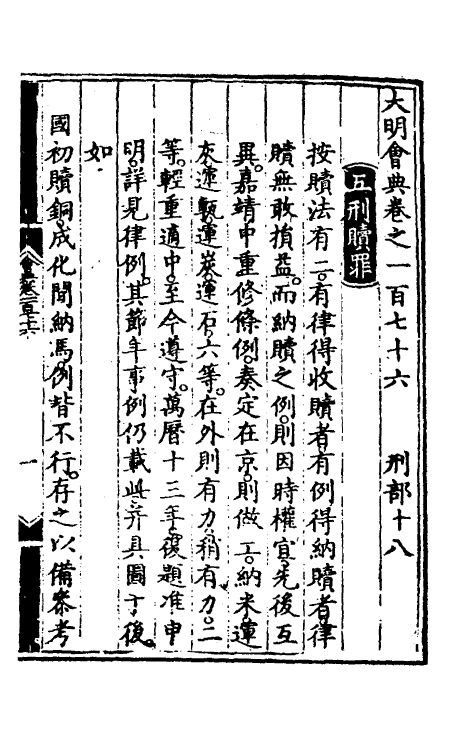 大明會典卷之一百七十六　刑部十八
五刑贖罪
按贖法有二有律得收贖者有例得納贖者律
贖無敢損益而納贖之例則因時權宜先後互
異嘉靖中重修條例奏定在京則做工納米運
灰運甎運炭運石六等在外則有力稍有力二
等輕重適中至今遵守萬曆十三年復題准申
明詳見律例其節年事例仍載此并具圖于後
如
國初贖銅成化間納馬例皆不行存之以備參考
一